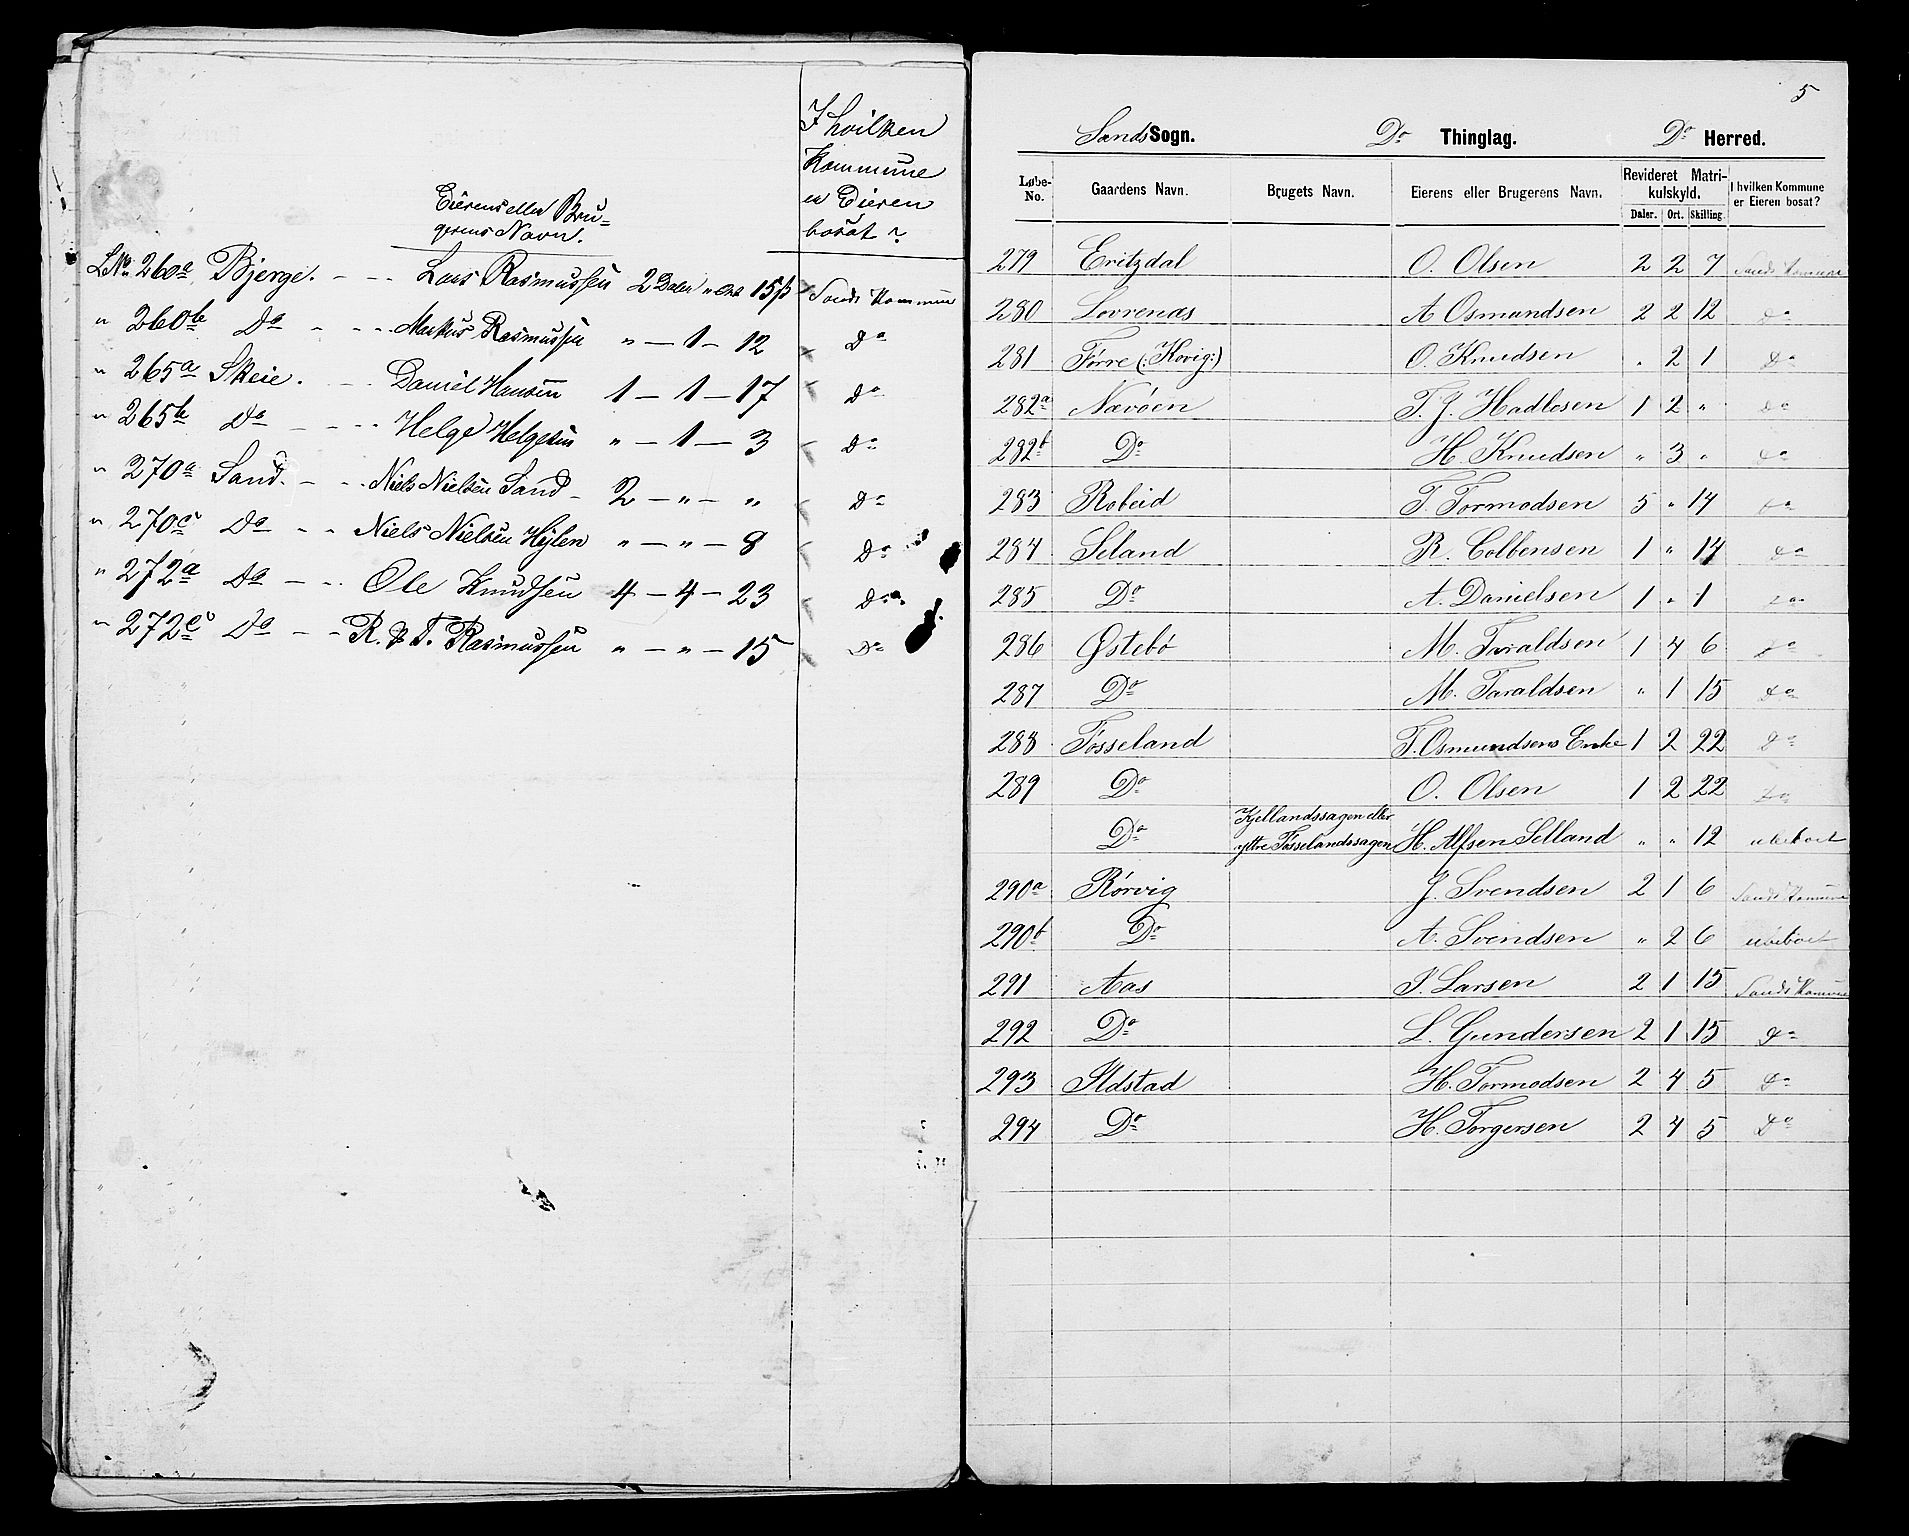 I hvilken
Kommune
er Eieren
bosat?
Eierens eller Bru-
gerens Navn.
LNo 260a Bjerge. - - Lars Rasmussen 2 Daler " Ort 15 ß Sands Kommune
" 260b Do - - - Markus Rasmussen " - 1 - 12 Do
" 265a Skeie. - - Daniel Hansen 1 - 1 - 17 Do
" 265b Do - - - - Helge Helgesen " - 1 - 3 Do
" 270a Sand. - - - Niels Nielsen Sand - 2 - " - " Do
" 270c Do - - Niels Nielsen Hylen " - " - 8 Do
" 272a Do - - - Ole Knudsen 4 - 4 - 23 Do
" 272c Do - - R. & T. Rasmussen " - " - 15 Do
5
Sands Sogn. Do Thinglag. Do Herred.
Løbe-No. Gaardens Navn. Brugets Navn. Eierens eller Brugerens Navn. Revideret Matrikulskyld. I hvilken Kommune er Eieren bosat?
Daler. Ort. Skilling.
279 Eritzdal O. Olsen 2 2 7 Sands Kommune
280 Lovrenæs A Osmundsen 2 2 12 Do
281 Førre (: Hovig:) O. Knudsen " 2 1 Do
282a Navøen T. J. Hadlesen 1 2 " Do
282b Do H. Knudsen " 3 " Do
283 Robeid T. Tormodsen 5 " 14 Do
284 Seland R. Colbensen 1 " 14 Do
285 Do A. Danielsen 1 " 1 Do
286 Østebø M. Taraldsen 1 4 6 Do
287 Do M. Taraldsen " 1 15 Do
288 Fosseland T. Osmundsens Enke 1 2 22 Do
289 Do O. Olsen 1 2 22 Do
Do Kjellandssagen eller
yttre Fosselandssagen H. Alfsen Selland " " 12 ubeboet
290a Rørvig J. Svendsen 2 1 6 Sands Kommune
290b Do A. Svendsen " 2 6 ubeboet
291 Aas P. Larsen 2 1 15 Sands Kommune
292 Do L. Gundersen 2 1 15 Do
293 Ildstad H. Tormodsen 2 4 5 Do
294 Do H. Torgersen 2 4 5 Do